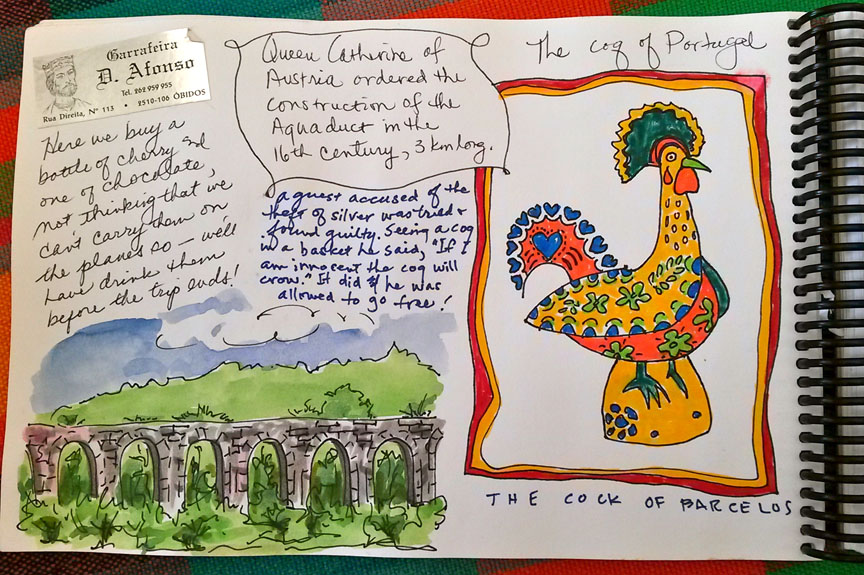 Garrafeira
D. Afonso
Tel. 262 959 955
Rua Direita, Nº 113 • 2510-106 ÓBIDOS
Here we buy a
bottle of cherry and
one of chocolate,
not thinking that we
can't carry them on
the planes so — we'll
have drink them
before the trip ends!
Queen Catherine of
Austria ordered the
construction of the
Aquaduct in the
16th century, 3 km long.
a guest accused of the
theft of silver was tried &
found guilty. Seeing a coq
in a basket he said, "If I
am innocent the coq will
crow." It did & he was
allowed to go free!
The coq of Portugal
THE COCK OF BARCELOS